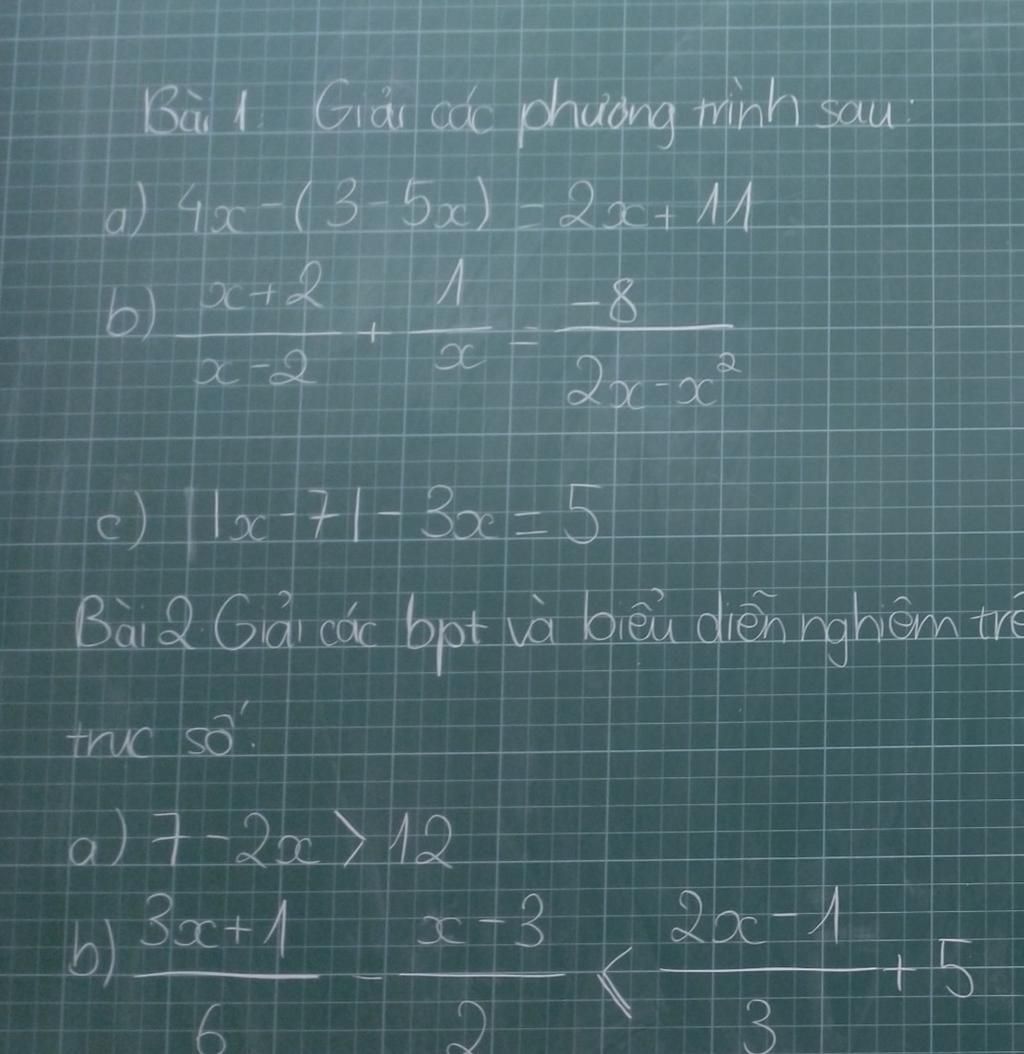 Bài 1: Giải các phương trình sau:
a) 4x - (3 - 5x) = 2x + 11
b) (x+2)/(x-2) + 1/x = -8/(2x - x²)
c) |x - 7| - 3x = 5
Bài 2. Giải các bpt và biểu diễn nghiêm trê
truc số.
a) 7 - 2x > 12
b) (3x+1)/6 - (x-3)/2 ⩽ (2x-1)/3 + 5